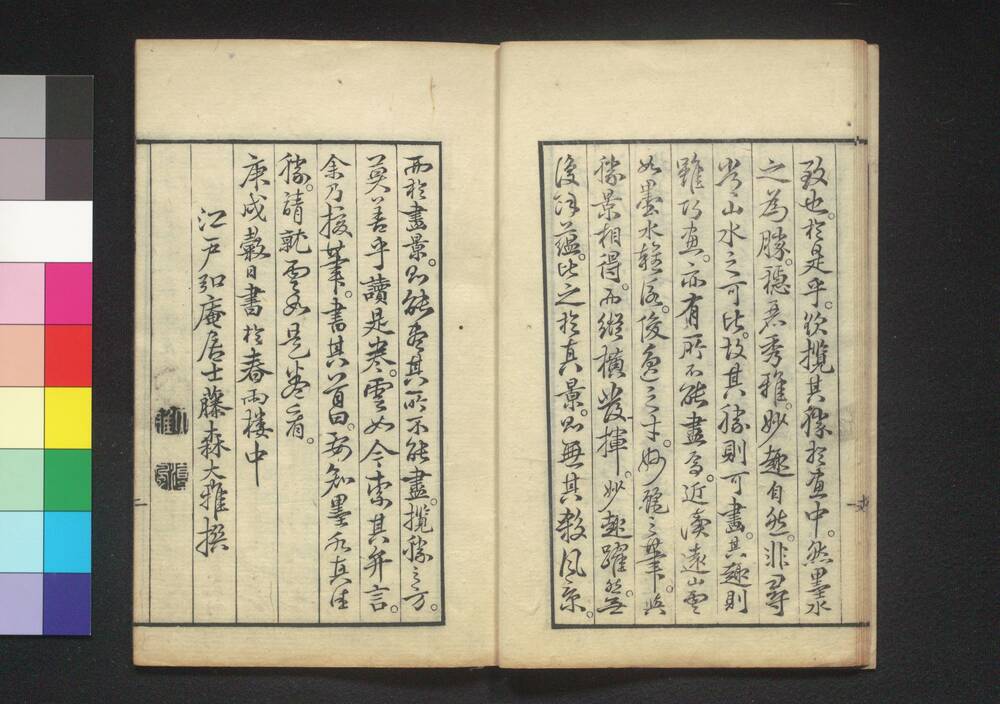 致也。於是乎。欲攬其勝於畫中。然墨水
之為勝。穩秀雅。妙趣自然。非尋
常山水之可比。故其勝則可畫。其趣則
雖巧畫。亦有所不能盡焉。近濱遠山雲
如墨水雜後。俊逸之才。妙麗之筆。與
勝景相得。而縱橫發揮。妙趣躍然無
復餘蘊。比之於真景。則無其殺風京。
而於畫景。則能盡其所不能盡。攬勝之方。
莫善乎讀是卷。雲如今需其弁言。
余乃援筆。書其首曰。要知墨水真佳
勝。請就雲如是卷看。
庚戌穀日書於春雨樓中
江戶弘庵居士藤森大雅撰